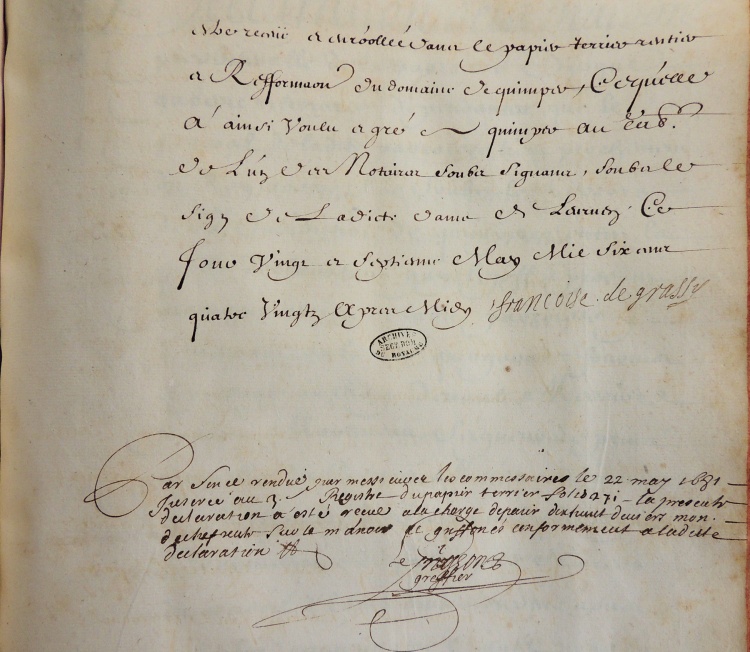 estre receu et enroollé dans le papier terrier rentier
et Refformaon du domaine de quimper, Ce quelle
a ainsi Voulu et gré quimper au
de Notaires soubz signans, soubz le
sign de Ladicte dame de Ce
Jour Vingt et septieme May Mil six cent
quatre Vingtz Apres Midy francoise de grassy
ARCHIVES
SECT. DOM.
DU ROYAUME
Par Sence rendue par messieurs les commessaires le 22 may 1681
Jnserée au 3. Registre du papier terrier folio 271 la presente
declaration a esté receue a la charge depaier dixhuict deniers mon.
de chefrente sur le manoir de griffonés conformement a ladite
declaration
Le
greffier